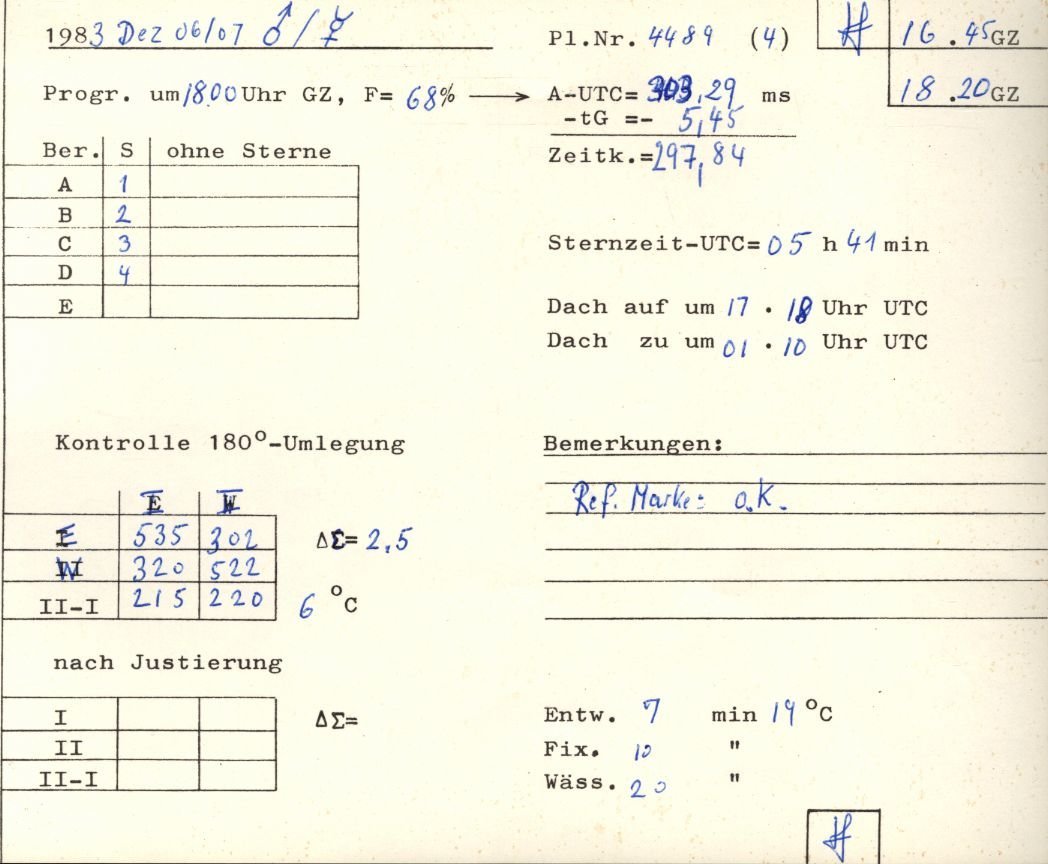 1983 Dez 06/07 ♂/☿ Pl.Nr. 4489 (4) 16.45GZ
Progr. um 18.00 Uhr GZ, F= 68% ⟶ A-UTC= 303,29 ms 18.20GZ
-tG =- 5,45
Ber. S ohne Sterne Zeitk.=297,84
A 1
B 2
C 3 Sternzeit-UTC= 05 h 41 min
D 4
E Dach auf um 17 . 18 Uhr UTC
Dach zu um 01 . 10 Uhr UTC
Kontrolle 180°-Umlegung Bemerkungen:
E W Ref. Marke: o.K.
E 535 302 ΔΣ= 2,5
W 320 522
II-I 215 220 6 °C
nach Justierung
I ΔΣ= Entw. 7 min 19 °C
II Fix. 10 "
II-I Wäss. 20 "